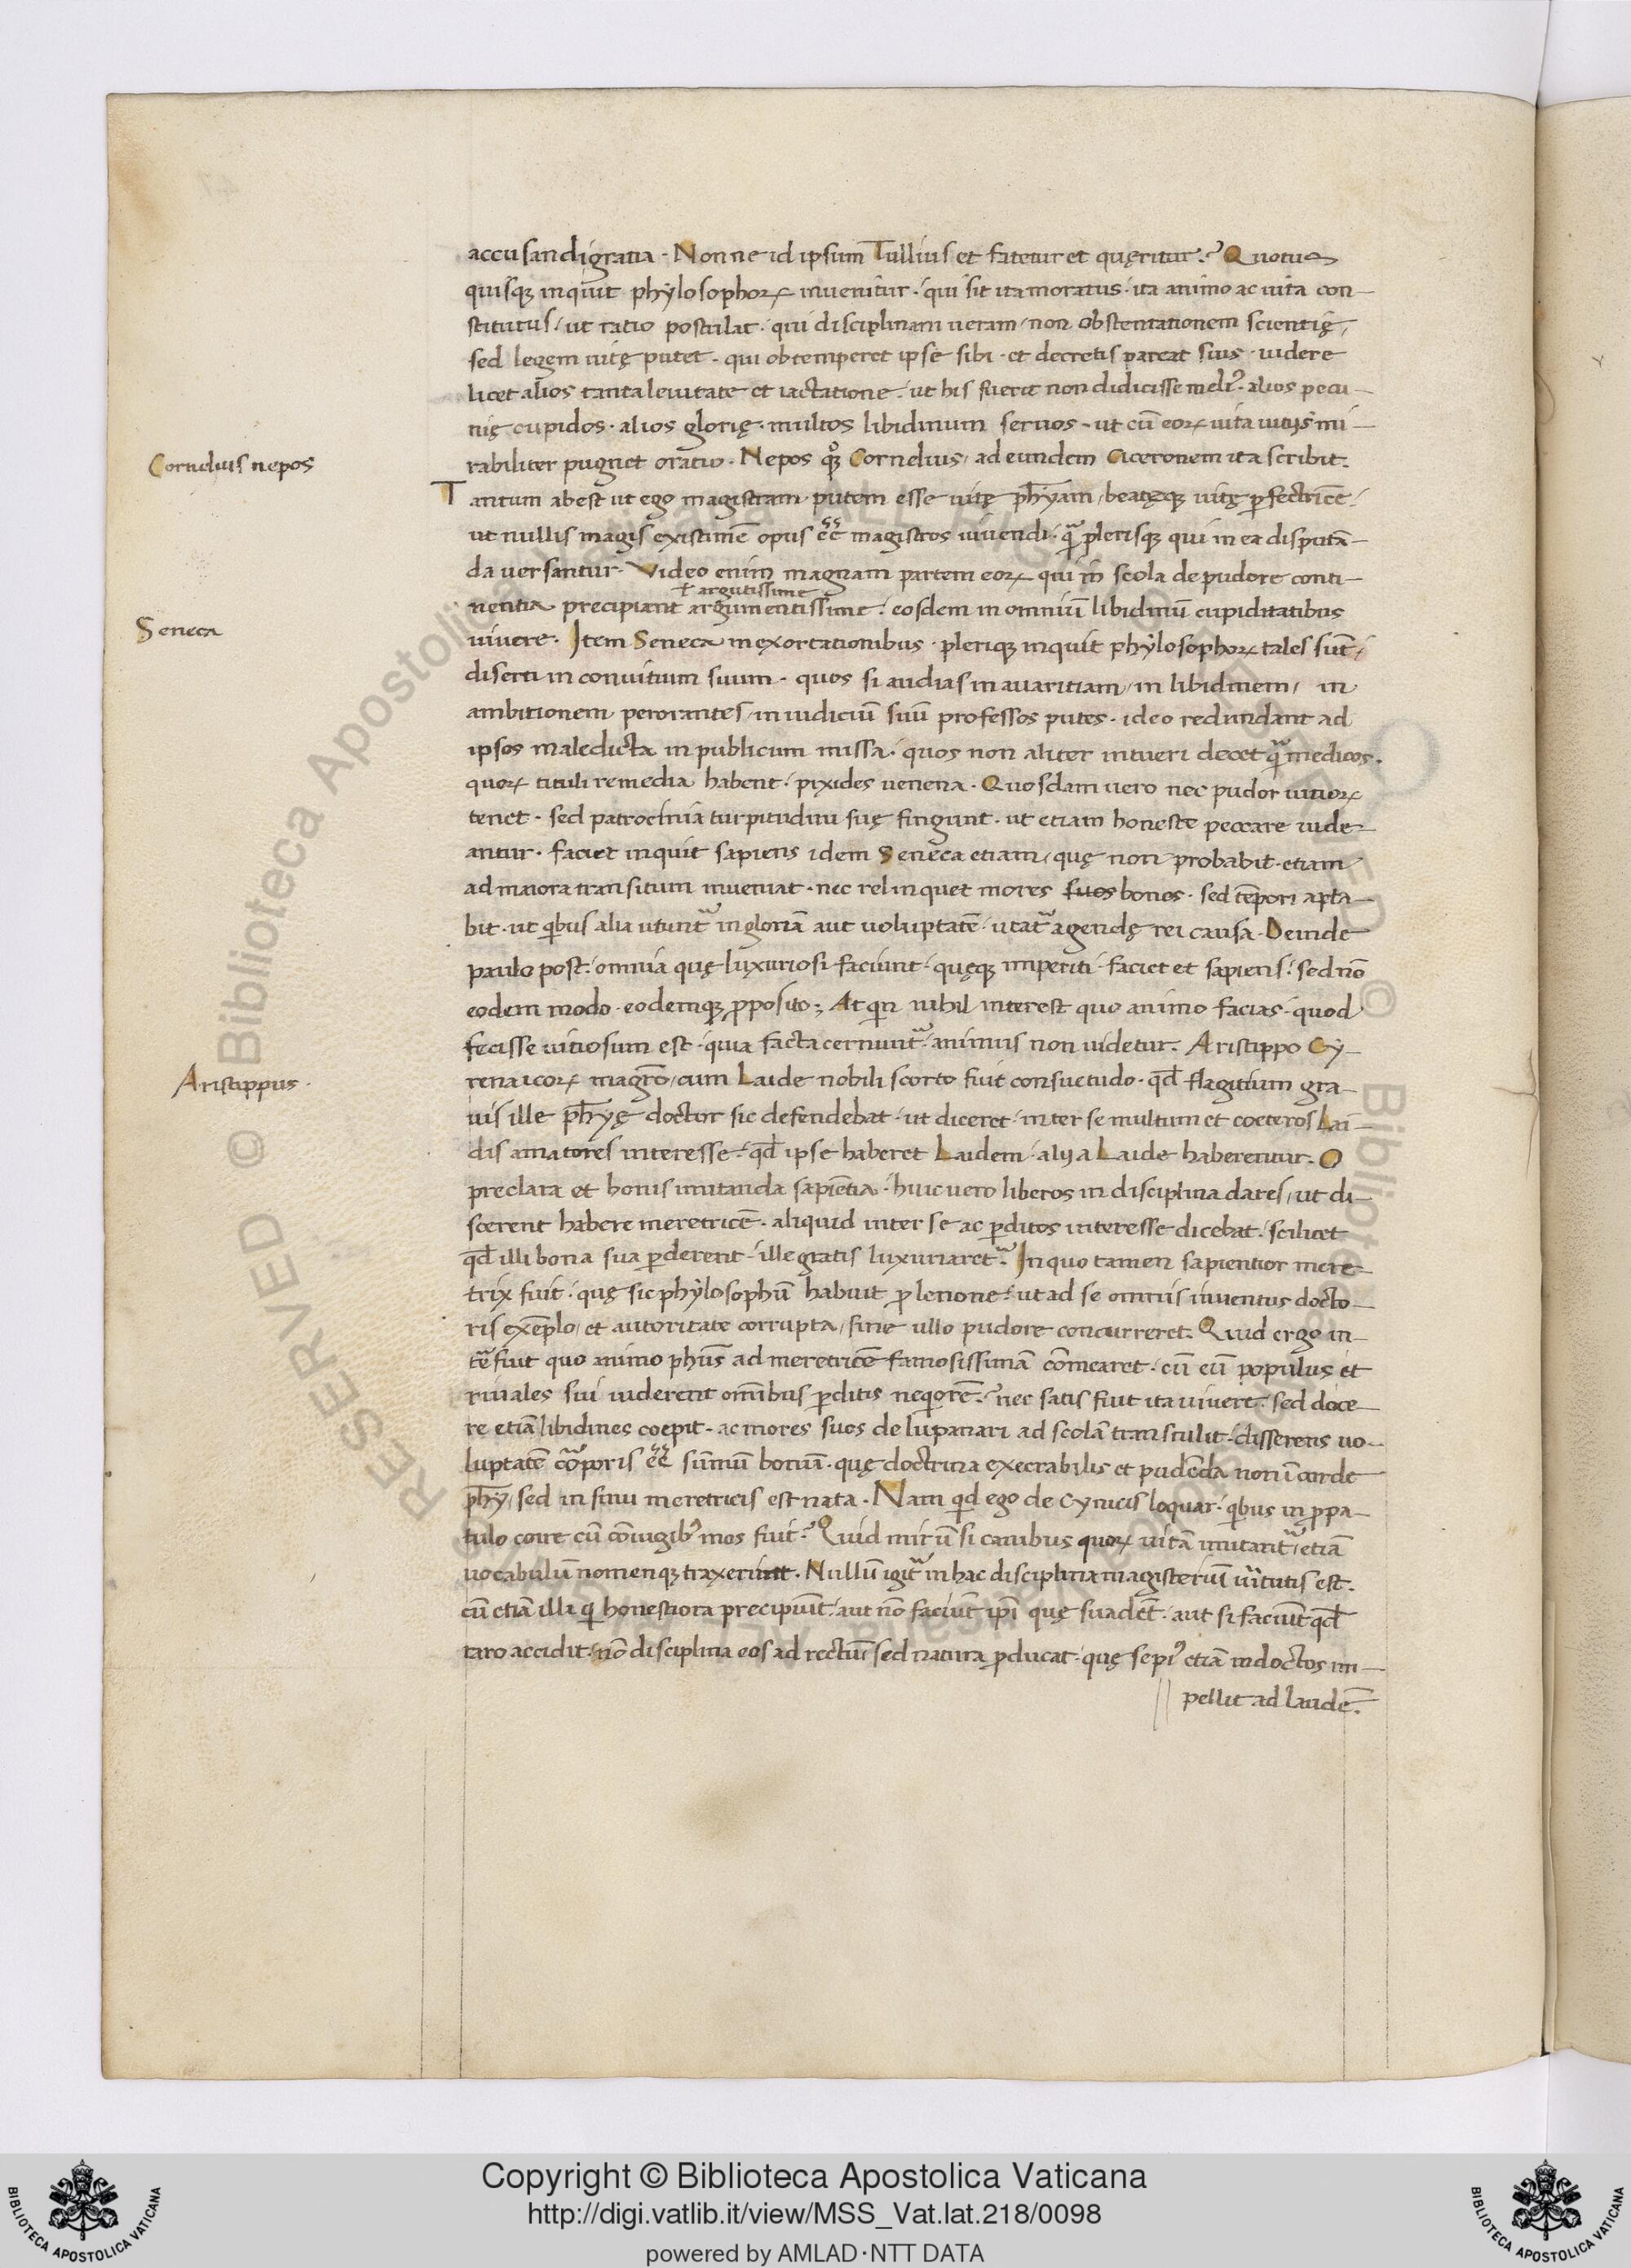 accusandi gratia · Nonne id ipsum Tullius et fatetur et quęritur? Quotus
quisqꝫ inquit phylosophoꝝ inuenitur · qui sit ita moratus · ita animo ac uita con-
stitutus / ut ratio postulat · qui disciplinam ueram / non obstentationem scientię /
sed legem uitę putet · qui obtemperet ipse sibi · et decretis pareat suis · uidere
licet alios tanta leuitate et iactatione · ut his fuerit non didicisse meliꝰ · alios pecu-
nię cupidos · alios glorię · multos libidinum seruos · ut cū eoꝝ uita uitijs mi-
rabiliter pugnet oratio · Nepos qͦꝫ Cornelius / ad eundem Ciceronem ita scribit.
Cornelius nepos
Tantum abest ut ego magistram putem esse uitę ph̄yam / beatęqꝫ uitę ꝑfectricē /
ut nullis magis existimē opus eēē magistros uiuendi · quā plerisqꝫ qui in ea disputā-
da uersantur · Video enim magnam partem eoꝝ qui in scola de pudore conti-
ł argutissime
nentia precipiant argumentissime · eosdem in omniū libidinū cupiditatibus
Seneca
uiuere · Item Seneca in exortationibus · plerique inquit phylosophoꝝ tales sūt /
diserti in conuitium suum · quos si audias in auaritiam / in libidinem / in
ambitionem perorantes / in iudiciū suū professos putes · ideo redundant ad
ipsos maledicta in publicum missa · quos non aliter intueri decet quā medicos ·
quoꝝ tituli remedia habent · pixides uenena · Quosdam uero nec pudor uitioꝝ
tenet · sed patrocinia turpitudini suę fingunt · ut etiam honeste peccare uide-
antur · faciet inquit sapiens idem Seneca etiam / quę non probabit · etiam
ad maiora transitum inueniat · nec relinquet mores suos bonos · sed tēpori apta-
bit · ut qͥbus alia utunt᷑ in gloriā aut uoluptatē · utat᷑ agendę rei causa · Deinde
paulo post · omnia quę luxuriosi faciunt · quęqꝫ imperiti · faciet et sapiens · sed nō
eodem modo · eodemqꝫ ꝓposito ; Atqͥn nihil interest quo animo facias · quod
fecisse uitiosum est · quia facta cernunt᷑ · animus non uidetur. Aristippo Cy-
Aristippus ·
renaicoꝝ magr̄o / cum Laide nobili scorto fuit consuetudo · qd̄ flagitium gra-
uis ille ph̄yę doctor sic defendebat · ut diceret · inter se multum et coeteros Lai-
dis amatores interesse · qd̄ ipse haberet Laidem · alij a Laide haberentur. O
preclara et bonis imitanda sapiētia · huic uero liberos in disciplina dares / ut di-
scerent habere meretricē · aliquid inter se ac ꝑditos interesse dicebat · scilicet
qd̄ illi bona sua ꝑderent · ille gratis luxuriaret᷑ · In quo tamen sapientior mere-
trix fuit · quę sic phylosophū habuit ꝓ lenone · ut ad se omnis iuuentus docto-
ris exēplo / et autoritate corrupta / sine ullo pudore concurreret. Quid ergo in-
tē fuit quo animo ph̄us ad meretricē famosissimā cōmearet · cū eū populus et
riuales sui uiderent omībus ꝑditis neqͥorē? nec satis fuit ita uiuere · sed doce-
re etiā libidines coepit · ac mores suos de lupanari ad scolā transtulit · disserens uo-
luptatē corporis eēē sūmū bonū · quę doctrina execrabilis et pudēda non ī corde
ph̄y / sed in sinu meretricis est nata · Nam qͥd ego de Cynicis loquar · qͥbus in ꝓpa-
tulo coire cū cōiugibꝰ mos fuit? Quid mirū si canibus quoꝝ uitā imitant᷑ / etiā
uocabulū nomenqꝫ traxerint · Nullū igit᷑ in hac disciplina magisteriū uir̄tutis est.
cū etiā illi qͥ honestiora precipiūt · aut nō faciūt ip̄i quę suadēt · aut si faciūt qd̄
raro accidit · nō disciplina eos ad rectū sed natura ꝑducat · quę sepiꝰ etiā indoctos im-
pellit ad laudē.
Copyright © Biblioteca Apostolica Vaticana
http://digi.vatlib.it/view/MSS_Vat.lat.218/0098
powered by AMLAD·NTT DATA
BIBLIOTECA APOSTOLICA VATICANA
BIBLIOTECA APOSTOLICA VATICANA